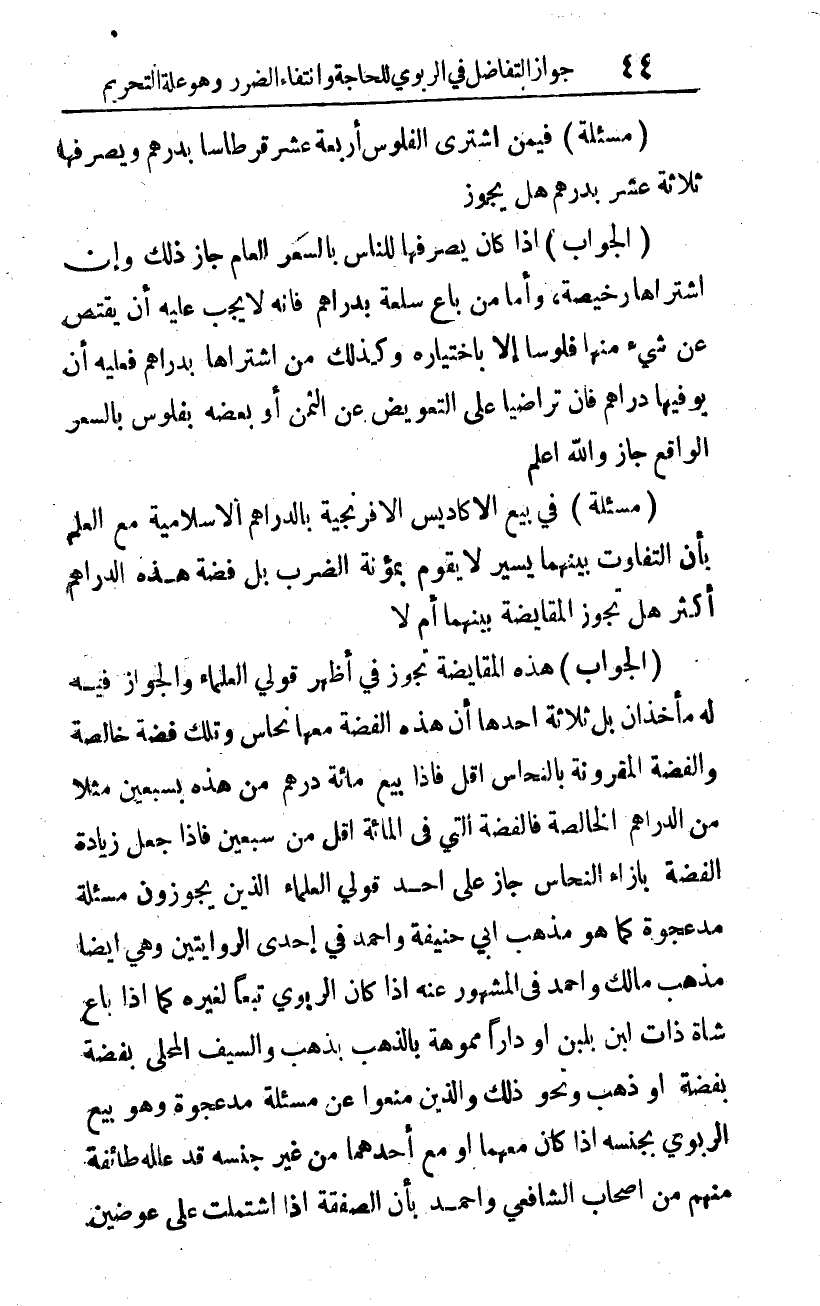 ٤٤ جواز التفاضل في الربوي للحاجة وانتفاء الضرر وهو علة التحريم
( مسئلة ) فيمن اشترى الفلوس أربعة عشر قرطاسا بدرهم ويصرفها
ثلاثة عشر بدرهم هل يجوز
( الجواب ) اذا كان يصرفها للناس بالسعر العام جاز ذلك وإن
اشتراها رخيصة، وأما من باع سلعة بدراهم فانه لا يجب عليه أن يقتص
عن شيء منها فلوسا إلا باختياره وكذلك من اشتراها بدراهم فعليه أن
يوفيها دراهم فان تراضيا على التعويض عن الثمن أو بعضه بفلوس بالسعر
الواقع جاز والله اعلم
( مسئلة ) في بيع الاكاديس الافرنجية بالدراهم الاسلامية مع العلم
بأن التفاوت بينهما يسير لا يقوم بمؤنة الضرب بل فضة هذه الدراهم
أكثر هل تجوز المقايضة بينهما أم لا
( الجواب ) هذه المقايضة تجوز في أظهر قولي العلماء والجواز فيه
له مأخذان بل ثلاثة احدها أن هذه الفضة معها نحاس وتلك فضة خالصة
والفضة المقرونة بالنحاس اقل فاذا بيع مائة درهم من هذه بسبعين مثلا
من الدراهم الخالصة فالفضة التي فى المائة اقل من سبعين فاذا جعل زيادة
الفضة بازاء النحاس جاز على احد قولي العلماء الذين يجوزون مسئلة
مدعجوة كما هو مذهب ابي حنيفة واحمد في إحدى الروايتين وهي ايضا
مذهب مالك واحمد فى المشهور عنه اذا كان الربوي تبعاً لغيره كما اذا باع
شاة ذات لبن بلبن او داراً مموهة بالذهب بذهب والسيف المحلى بفضة
بفضة او ذهب ونحو ذلك والذين منعوا عن مسئلة مدعجوة وهو بيع
الربوي بجنسه اذا كان معهما او مع أحدهما من غير جنسه قد علله طائفة
منهم من اصحاب الشافعي واحمد بأن الصفقة اذا اشتملت على عوضين